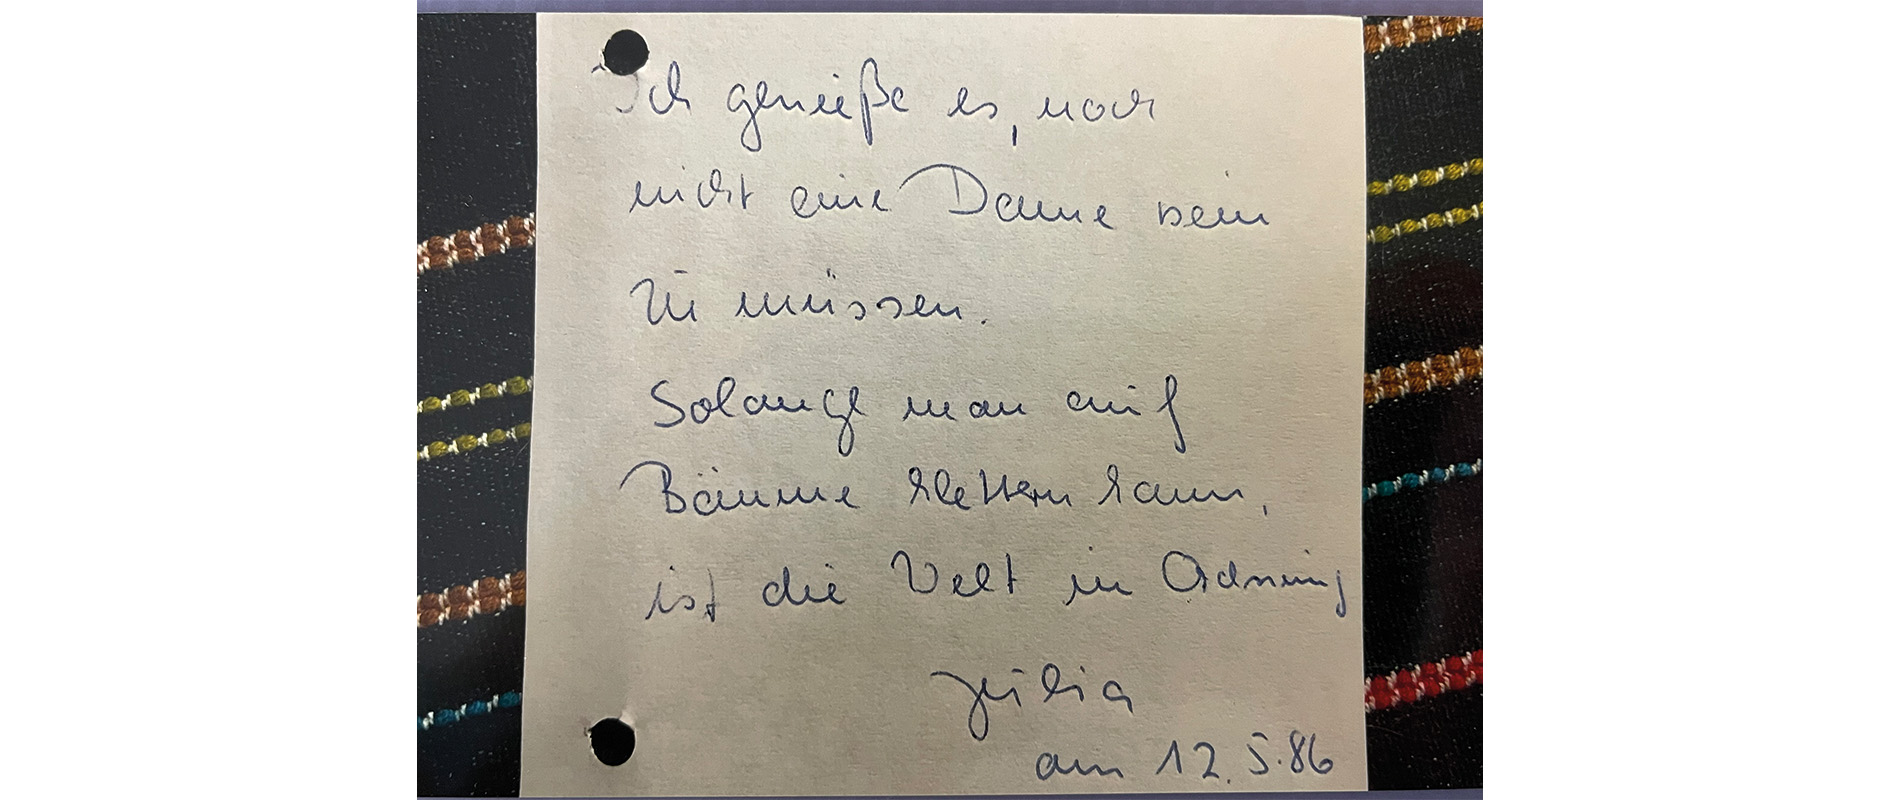 Ich genieße es, noch
nicht eine Dame sein
zu müssen.
Solange man auf
Bäume klettern kann,
ist die Welt in Ordnung
Julia
am 12.5.86